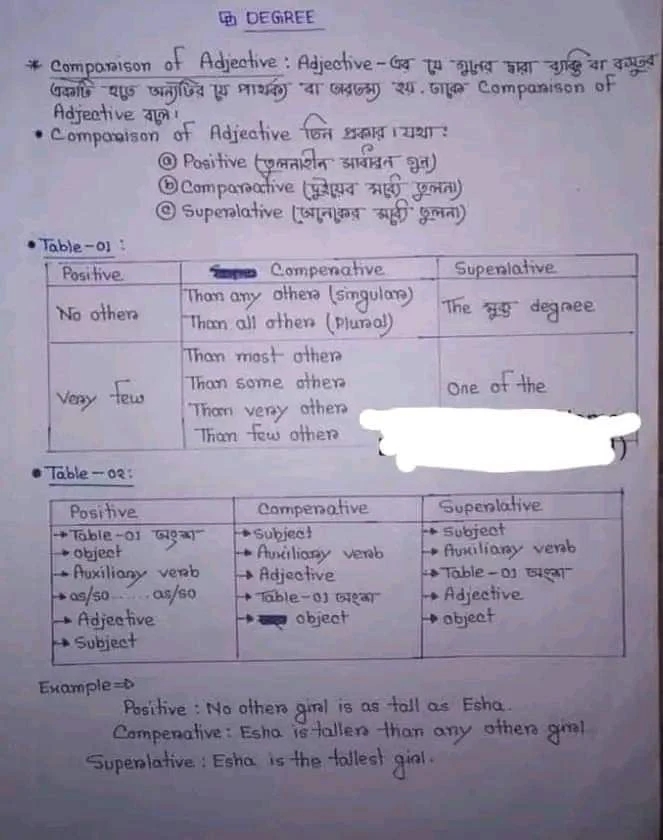 DEGREE
* Comparison of Adjective : Adjective-এর যে গুনের দ্বারা ব্যক্তি বা বস্তুর
একটি হতে অন্যটির যে পার্থক্য বা তারতম্য হয়. তাকে Comparison of
Adjective বলে।
• Comparison of Adjective তিন প্রকার। যথা:
ⓐ Positive (তুলনাহীন সাধারন গুন)
ⓑ Comparative (দুইয়ের মধ্যে তুলনা)
ⓒ Superlative (অনেকের মধ্যে তুলনা)
• Table-01 :
Positive Comperative Superlative
No other
Than any other (singular)
Than all other (plural)
The যুক্ত degree
Very few
Than most other
Than some other
Than very other
Than few other
One of the
• Table-02:
Positive Comperative Superlative
→ Table-01 অংশ
→ object
→ Auxiliary verb
→ as/so......as/so
→ Adjective
→ Subject
→ Subject
→ Auxiliary verb
→ Adjective
→ Table-01 অংশ
→ object
→ Subject
→ Auxiliary verb
→ Table-01 অংশ
→ Adjective
→ object
Example⇒
Positive : No other girl is as tall as Esha.
Comperative : Esha is taller than any other girl
Superlative : Esha is the tallest girl.